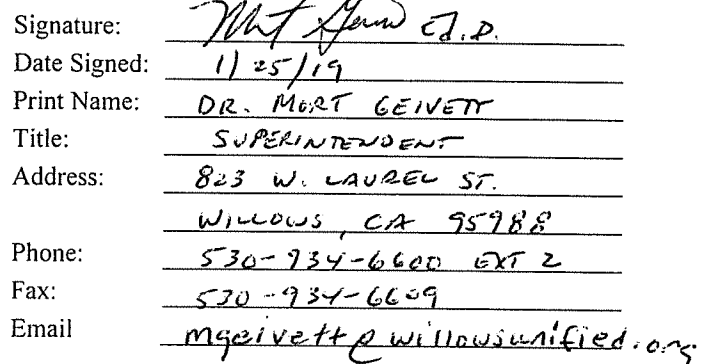 Signature: Mort Geivett Ed.D.
Date Signed: 1/25/19
Print Name: DR. MORT GEIVETT
Title: SUPERINTENDENT
Address: 823 W. LAUREL ST.
WILLOWS, CA 95988
Phone: 530-934-6600 EXT 2
Fax: 530-934-6609
Email mgeivett@willowsunified.org